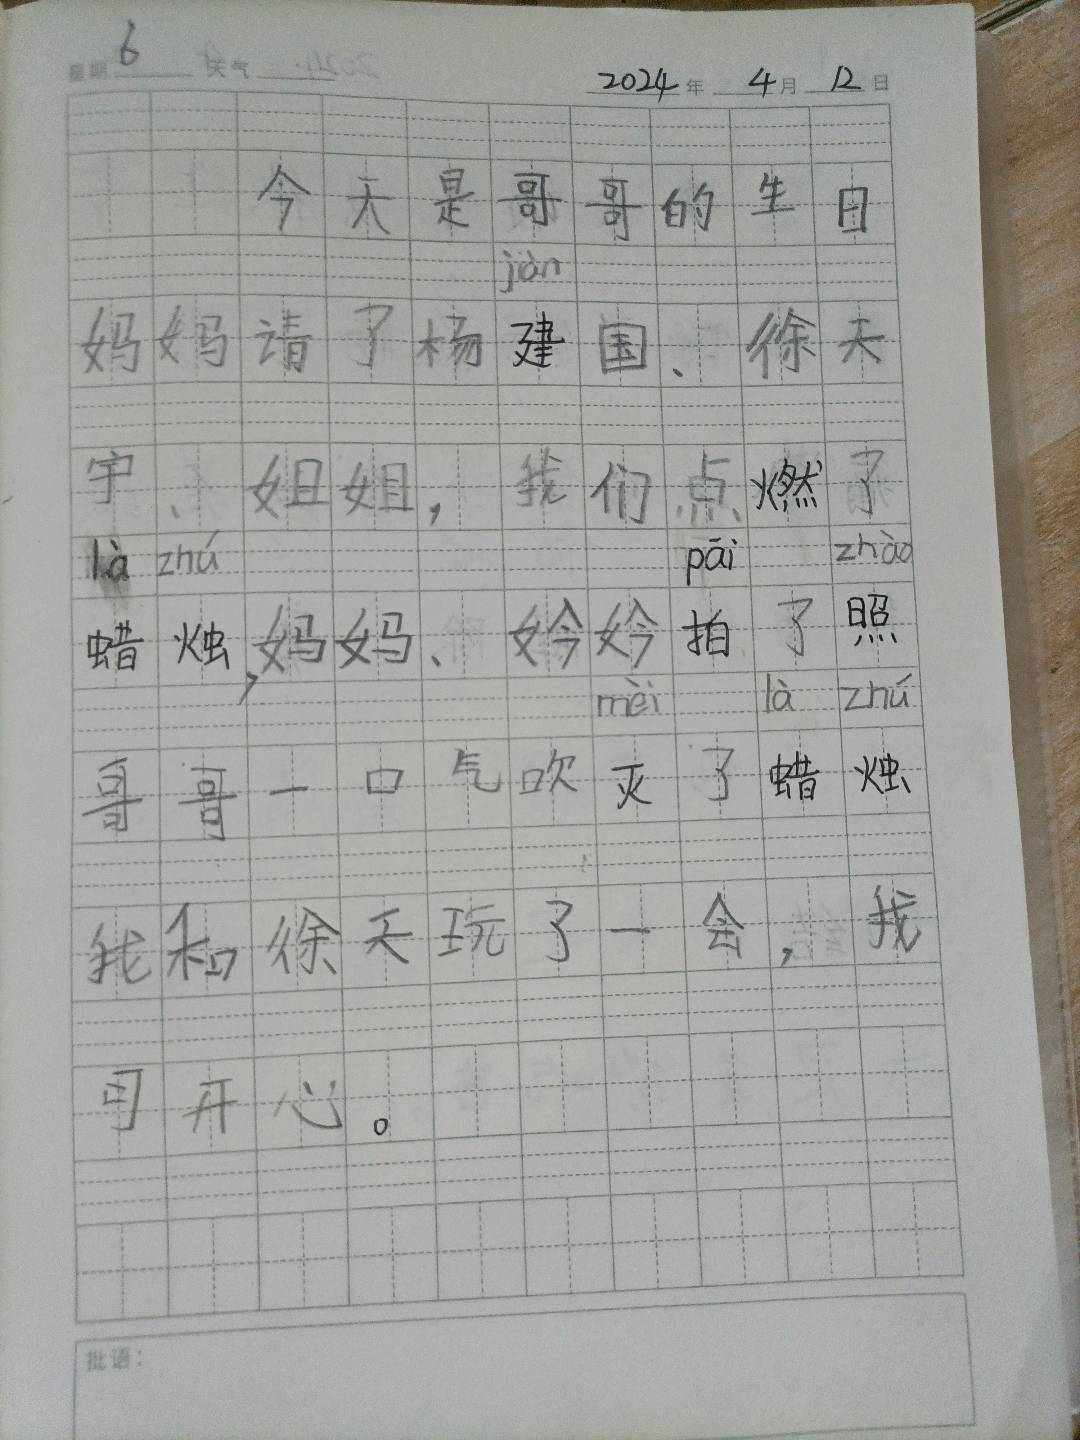 星期 6 天气 2024 年 4 月 12 日
今天是哥哥的生日
jiàn
妈妈请了杨建国、徐天
宇、姐姐，我们点燃了
là zhú pāi zhào
蜡烛，妈妈、妗妗拍了照
mèi là zhú
哥哥一口气吹灭了蜡烛
我和徐天玩了一会，我
可开心。
批语：